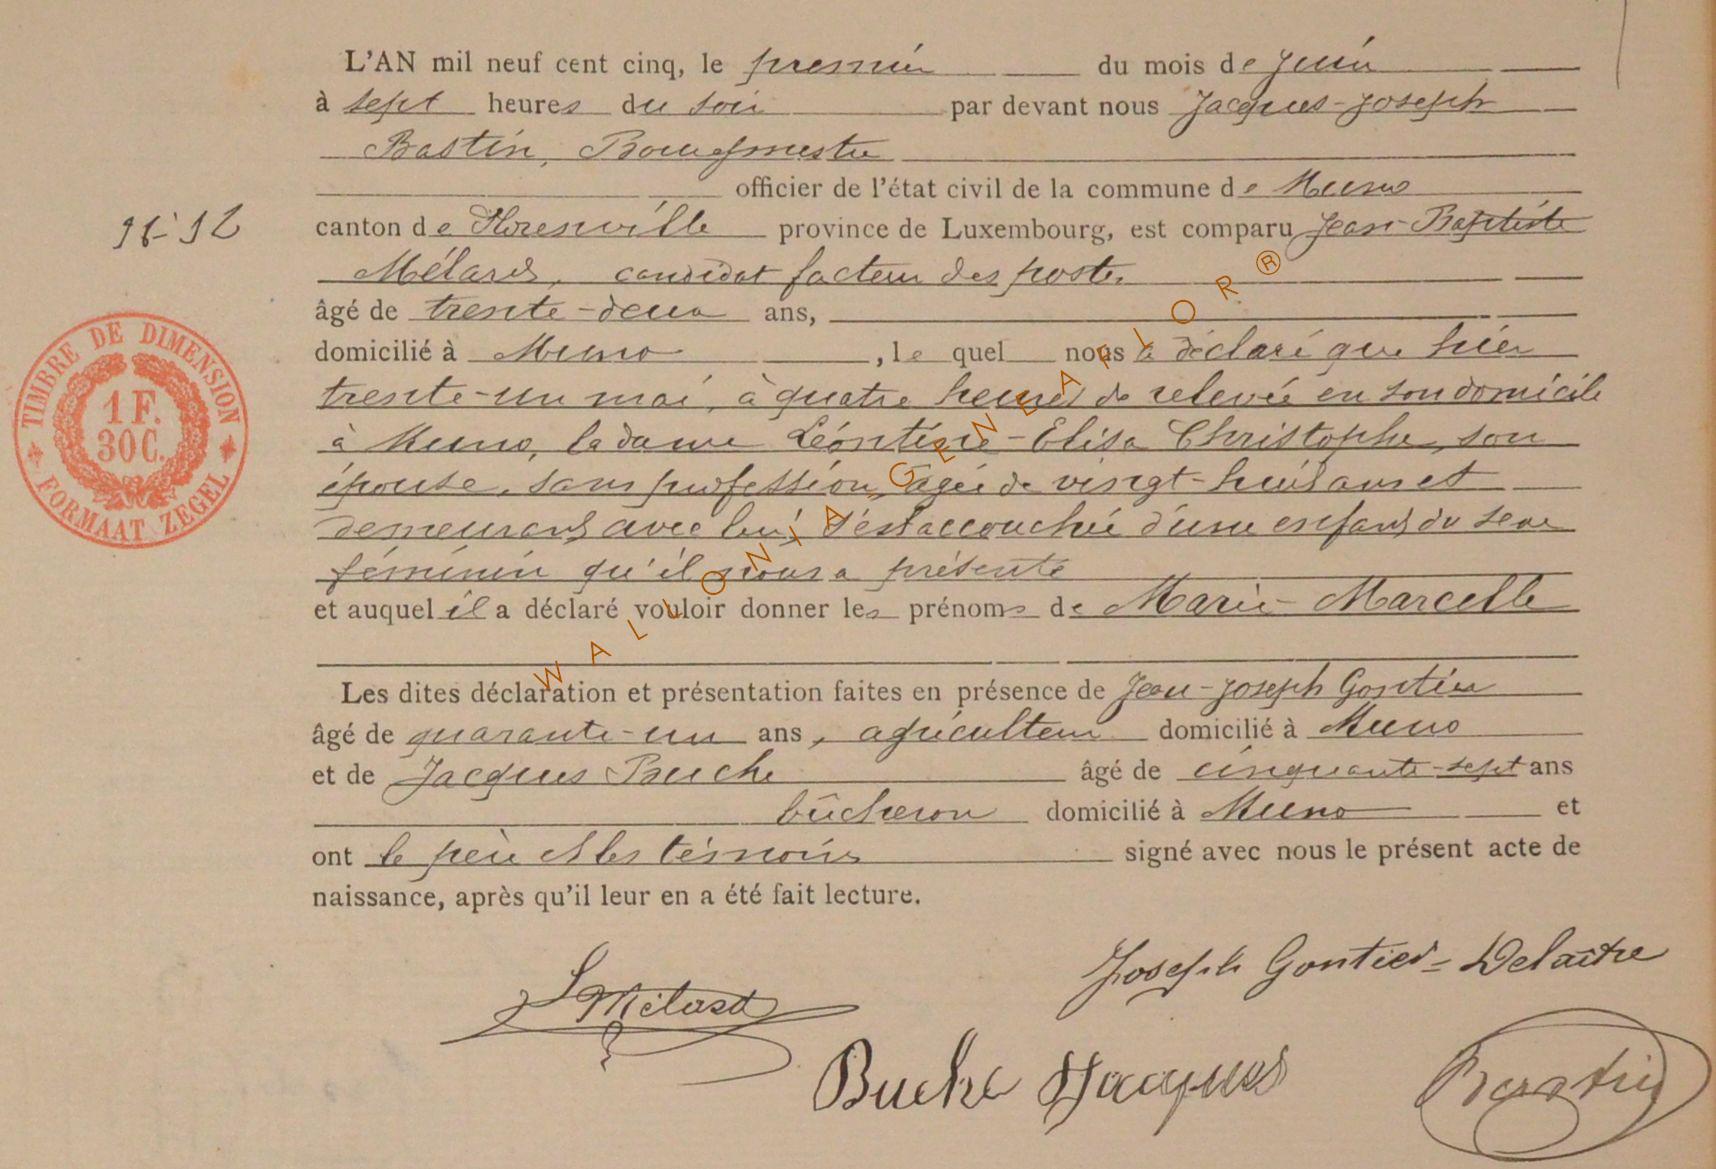 L'AN mil neuf cent cinq, le premier du mois de juin
à sept heures du soir par devant nous Jacques-Joseph
Bastin, Bourgmestre
officier de l'état civil de la commune de Muno
canton de Florenville province de Luxembourg, est comparu Jean-Baptiste
Mélard, candidat facteur des postes
âgé de trente-deux ans,
domicilié à Muno, lequel nous a déclaré que hier
trente-un mai, à quatre heures de relevée en son domicile
à Muno, la dame Léontine-Elisa Christophe, son
épouse, sans profession, âgée de vingt-huit ans et
demeurant avec lui, s'est accouchée d'une enfant du sexe
féminin qu'il nous a présenté
et auquel il a déclaré vouloir donner les prénoms de Marie-Marcelle
Les dites déclaration et présentation faites en présence de Jean-Joseph Gontier
âgé de quarante-un ans, agriculteur domicilié à Muno
et de Jacques Buche âgé de cinquante-sept ans
bûcheron domicilié à Muno et
ont le père et les témoins signé avec nous le présent acte de
naissance, après qu'il leur en a été fait lecture.
TIMBRE DE DIMENSION
1 F.
30 C.
FORMAAT ZEGEL
Mélard
Joseph Gontier-Delaître
Buche Jacques
Bastin
WALLONIA GENEAPIOR®